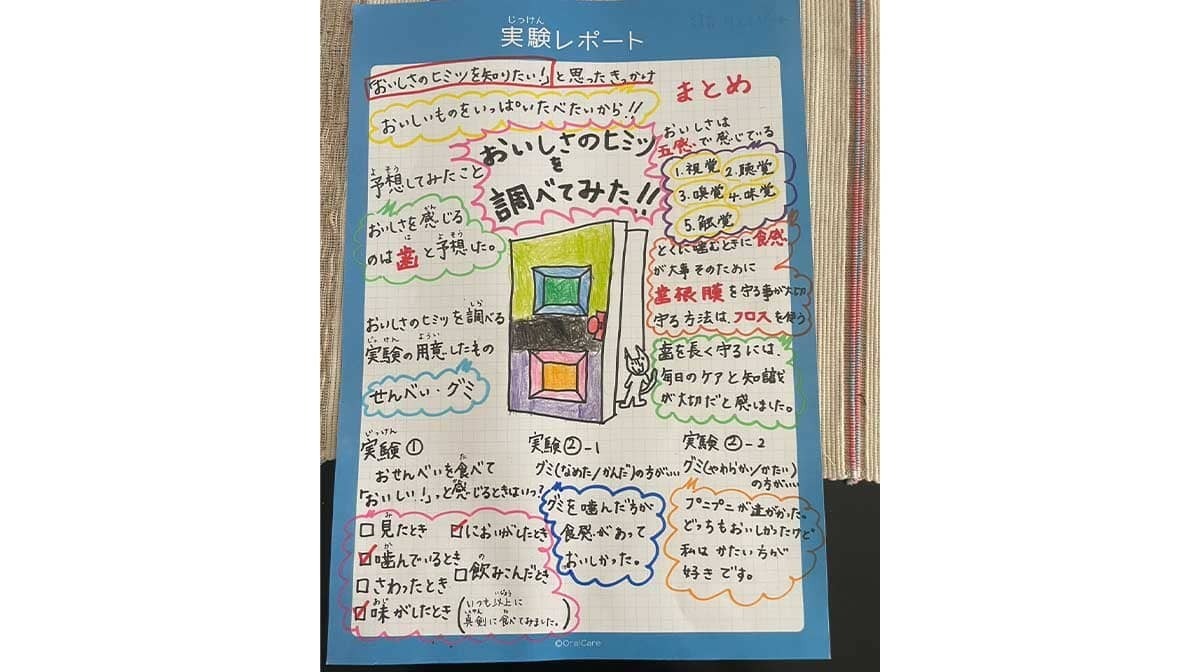 実験レポート
じっけん
「おいしさのヒミツを知りたい！」と思ったきっかけ
おいしいものをいっぱいたべたいから!!
おいしさのヒミツ
を
調べてみた!!
予想してみたこと
よそう
おいしさを感じる
かん
のは歯と予想した。
は よそう
おいしさのヒミツを調べる
しら
実験の用意したもの
じっけん ようい
せんべい・グミ
実験①
じっけん
おせんべいを食べて
た
「おいしい！」っと感じるときはいつ？
かん
見たとき
み
においがしたとき
噛んでいるとき
か
飲みこんだとき
の
さわったとき
味がしたとき
あじ
(いつも以上に
いじょう
真剣に食べてみました。)
しんけん た
実験②-1
グミ(なめた/かんだ)の方がい、、
グミを噛んだ方が
食感があって
おいしかった。
実験②-2
グミ(やわらかい/かたい)
の方がいい
プニプニが違がかった。
どっちもおいしかったけど
私はかたい方が
好きです。
まとめ
おいしさは
五感で感じている
1.視覚 2.聴覚
3.嗅覚 4.味覚
5.触覚
とくに噛むときに食感
が大事 そのために
歯根膜を守る事が大切
守る方法は、フロスを使う
歯を長く守るには、
毎日のケアと知識
が大切だと感しました。
©OralCare